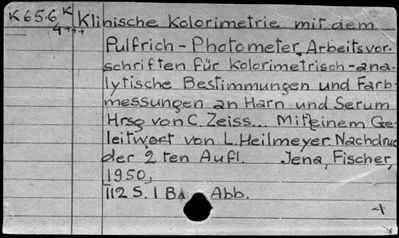 K 65.6 K Klinische Kolorimetrie mit dem
4+++ Pulfrich-Photometer, Arbeitsvor-
schriften für kolorimetrisch-ana-
lytische Bestimmungen und Farb-
messungen an Harn und Serum
Hrsg von C. Zeiss... Mit einem Ge-
leitwort von L. Heilmeyer Nachdruc
der 2ten Aufl. Jena, Fischer,
1950,
112 S. 1 Bl. Abb.